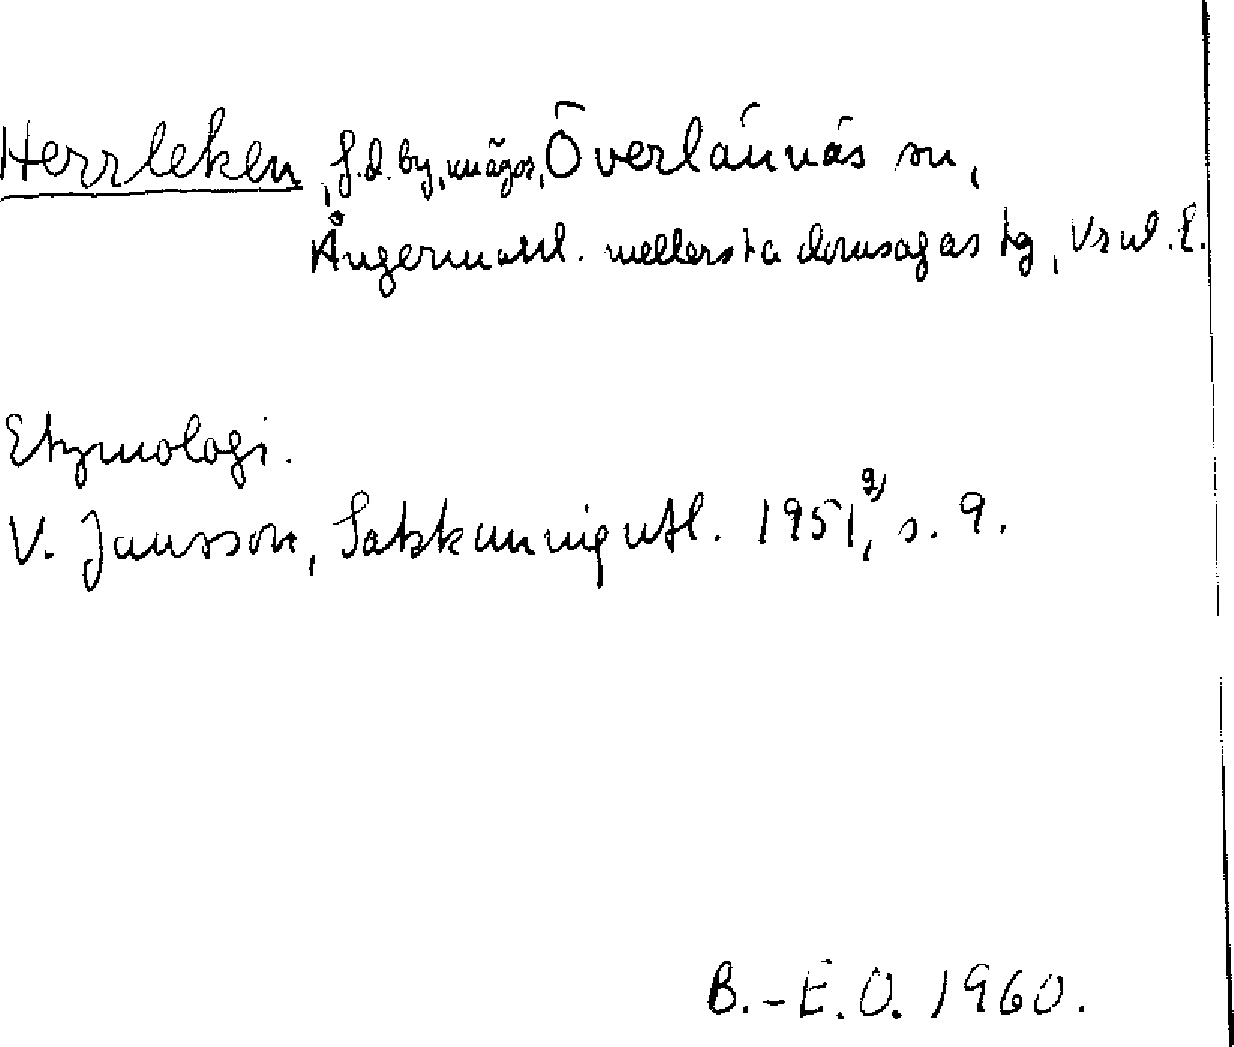 Herrleken, f.d. by, nu ägor, Överlännäs sn,
Ångermanl. mellersta domsagas tg, Vrnl. l.
Etymologi.
V. Jansson, Sakkunnigutl. 1951,2) s. 9.
B.-E.O. 1960.